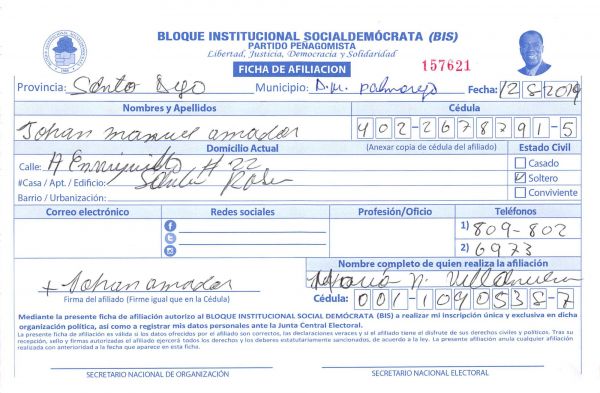 BLOQUE INSTITUCIONAL SOCIALDEMÓCRATA (BIS)
PARTIDO PEÑAGOMISTA
Libertad, Justicia, Democracia y Solidaridad
FICHA DE AFILIACION
157621
Provincia: Santo Dgo Municipio: D.M. Palmarejo Fecha: 12 8 2019
Nombres y Apellidos Cédula
Johan manuel amador 402-2678791-5
Domicilio Actual (Anexar copia de cédula del afiliado) Estado Civil
Calle: A Enriquillo # 22
Casado
#Casa / Apt. / Edificio: Santa Rosa
Soltero
Barrio / Urbanización:
Conviviente
Correo electrónico Redes sociales Profesión/Oficio Teléfonos
1) 809-802
2) 6973
Nombre completo de quien realiza la afiliación
Johan amador María N. Villanueva
Firma del afiliado (Firme igual que en la Cédula)
Cédula: 001-1090538-7
Mediante la presente ficha de afiliación autorizo al BLOQUE INSTITUCIONAL SOCIAL DEMÓCRATA (BIS) a realizar mi inscripción única y exclusiva en dicha
organización política, así como a registrar mis datos personales ante la Junta Central Electoral.
La presente ficha de afiliación es válida si los datos ofrecidos por el afiliado son correctos, las declaraciones veraces y si el afiliado tiene el disfrute de sus derechos civiles y políticos. Tras su
recepción, sello y firmas autorizadas el afiliado ejercerá todos los derechos y los deberes estatutariamente sancionados, de acuerdo a la ley. La presente afiliación anula cualquier afiliación
realizada con anterioridad a la fecha que aparece en esta ficha.
SECRETARIO NACIONAL DE ORGANIZACIÓN SECRETARIO NACIONAL ELECTORAL